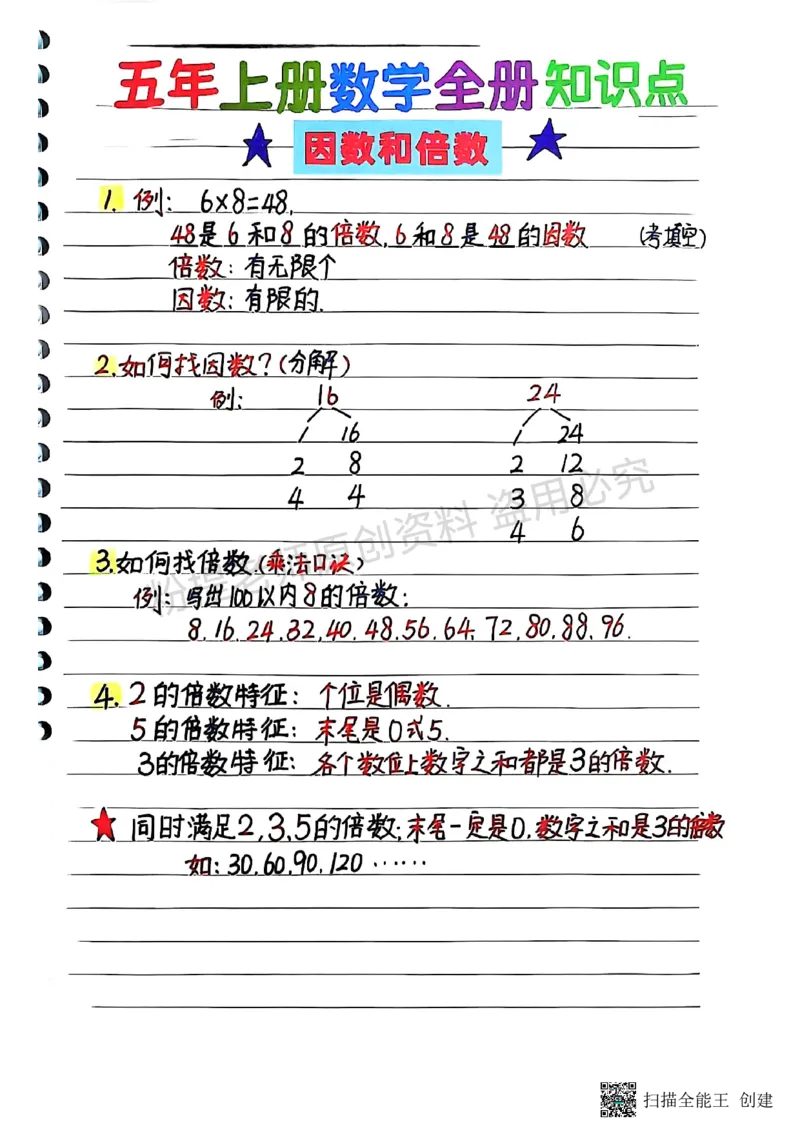 五年上册数学全册知识点
因数和倍数
1. 例: 6×8=48,
48是6和8的倍数,6和8是48的因数 (考填空)
倍数:有无限个
因数:有限的.
2.如何找因数?(分解)
例: 16 24
1 16 1 24
2 8 2 12
4 4 3 8
4 6
3.如何找倍数.(乘法口诀)
例:写出100以内8的倍数:
8.16.24.32.40.48.56.64.72.80.88.96.
4. 2的倍数特征: 个位是偶数.
5的倍数特征: 末尾是0或5.
3的倍数特征: 各个数位上数字之和都是3的倍数.
同时满足2,3,5的倍数:末尾一定是0,数字之和是3的倍数
如:30.60.90.120……
老师原创资料 盗用必究
扫描全能王 创建